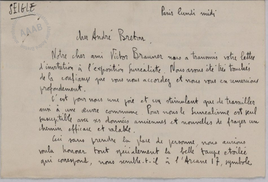 SEIGLE
Paris lundi midi
cher André Breton
Notre cher ami Victor Brauner nous a transmis votre lettre
d'invitation à l'exposition surréaliste. Nous avons été très touchés
de la confiance que vous nous accordez et nous vous en remercions
profondément.
C'est pour nous une joie et un stimulant que de travailler
avec à une œuvre commune. Pour nous le Surréalisme est seul
susceptible de données nouvelles de frayer un
chemin efficace et valable.
sans prendre la place de personne nous avions
voulu honorer tout spécialement la belle étoilée
qui correspond, nous semble-t-il à l'Arcane 17, symbole